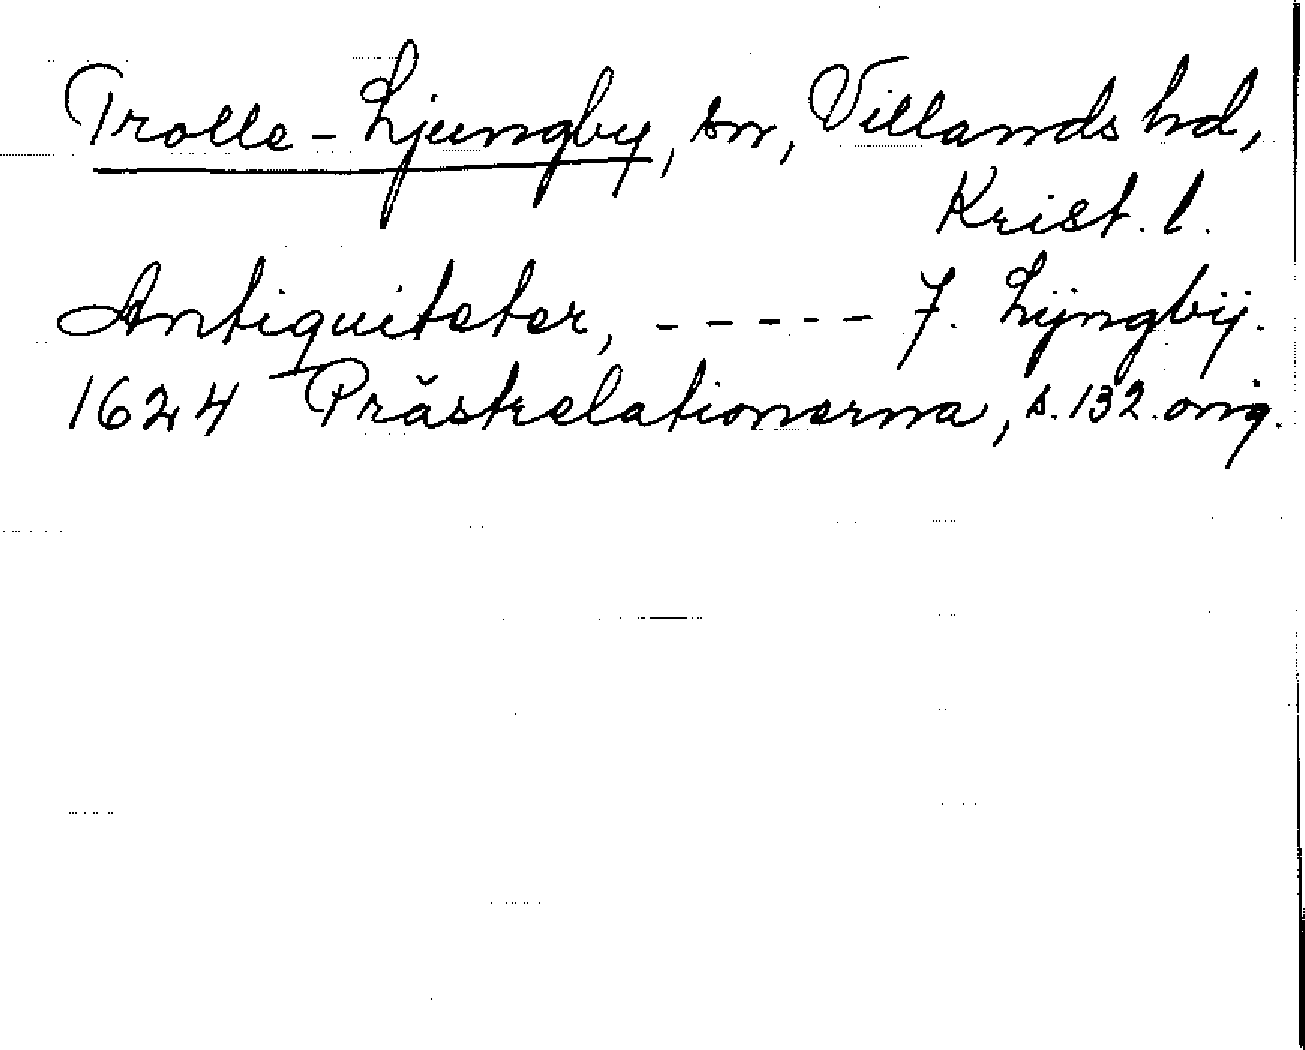 Trolle-Ljungby, sn, Villands hd,
Krist. l.
Antiquiteter, ----- J. Lÿngbÿ.
1624 Prästrelationerna, s. 132. orig.